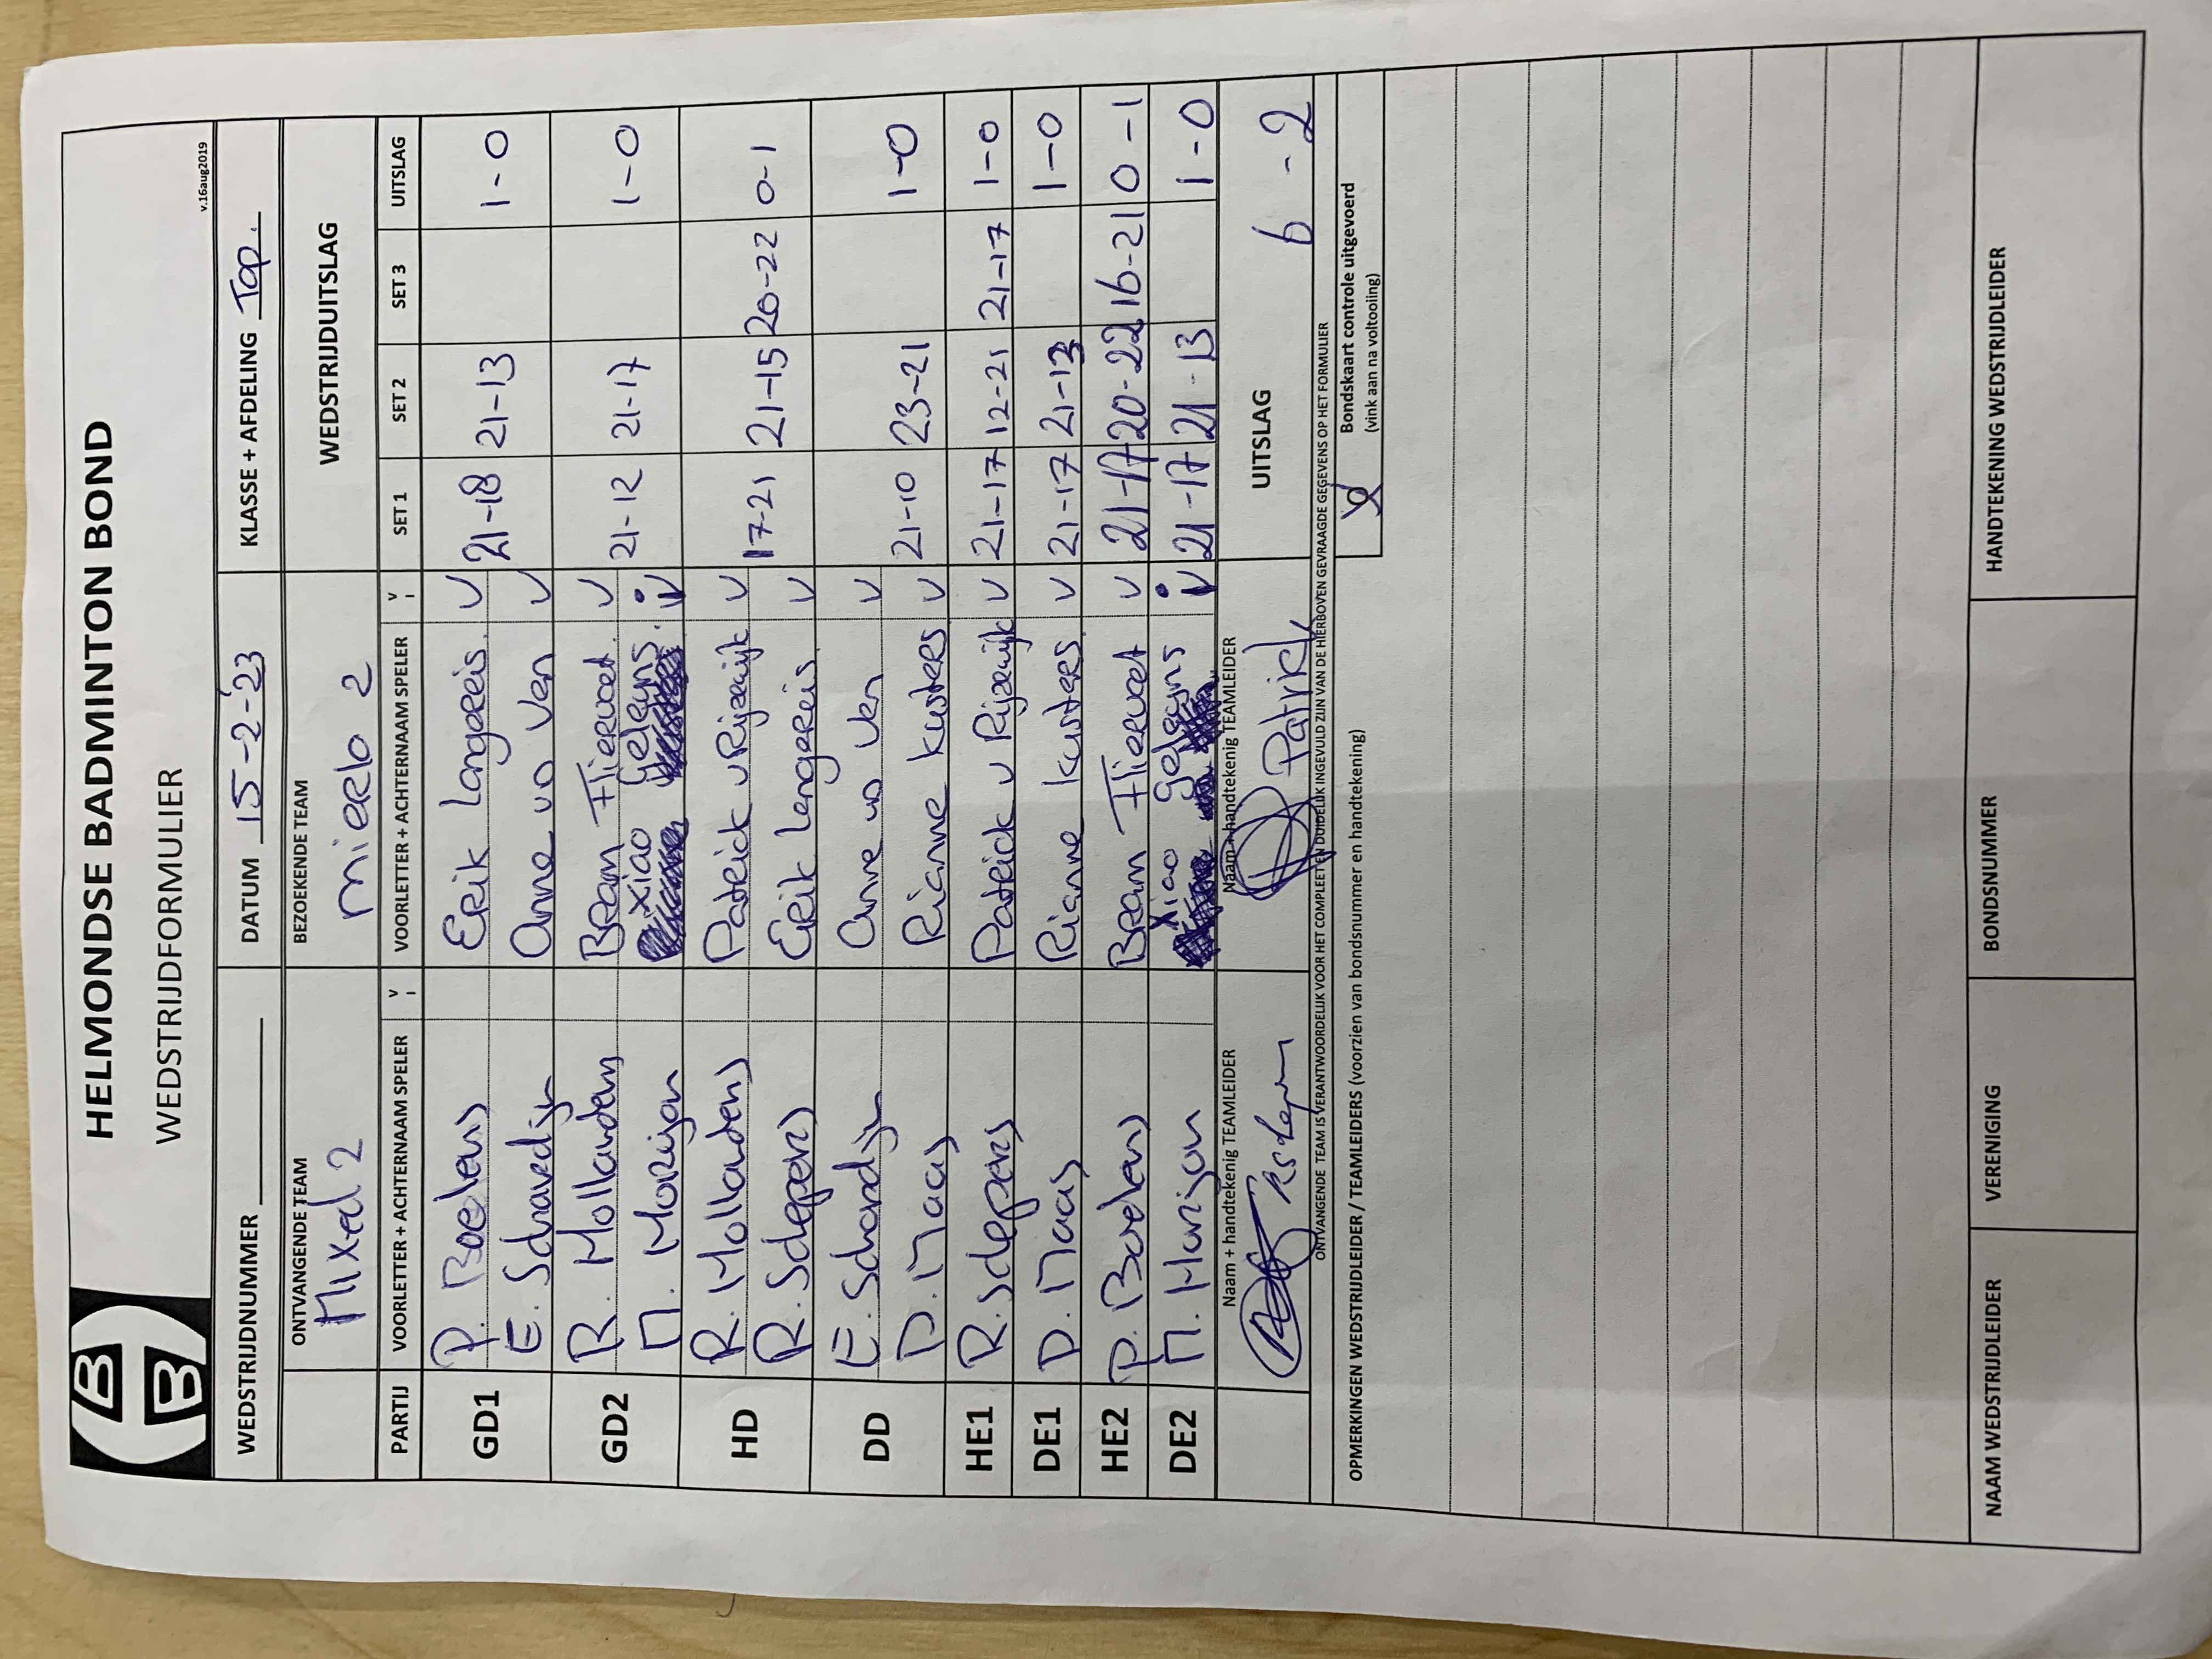 HELMONDSE BADMINTON BOND
WEDSTRIJDFORMULIER
v.16aug2019
WEDSTRIJDNUMMER DATUM 15-2-'23 KLASSE + AFDELING Top.
ONTVANGENDE TEAM BEZOEKENDE TEAM WEDSTRIJDUITSLAG
Mixed 2 Mierlo 2
PARTIJ VOORLETTER + ACHTERNAAM SPELER V I VOORLETTER + ACHTERNAAM SPELER V I SET 1 SET 2 SET 3 UITSLAG
GD1 P. Boelens Erik Langereis V 21-18 21-13 1-0
E. Schavedijn Anne vo Ven V
GD2 R. Hollanders Bram Fliervoet V 21-12 21-17 1-0
M. Marijon Xiao Geleijns V
HD R. Hollanders Patrick v Rijzewijk V 17-21 21-15 20-22 0-1
R. Schepers Erik Langereis V
DD E. Schavedijn Anne vo Ven V
D. Maas Rianne Kusters V 21-10 23-21 1-0
HE1 R. Schepers Patrick v Rijzewijk V 21-17 12-21 21-17 1-0
DE1 D. Maas Rianne Kusters V 21-17 21-13 1-0
HE2 P. Boelens Bram Fliervoet V 21-17 20-22 16-21 0-1
DE2 M. Marijon Xiao Geleijns V 21-17 21-13 1-0
Naam + handtekenig TEAMLEIDER Naam + handtekenig TEAMLEIDER UITSLAG 6-2
Patrick
ONTVANGENDE TEAM IS VERANTWOORDELIJK VOOR HET COMPLEET EN DUIDELIJK INGEVULD ZIJN VAN DE HIERBOVEN GEVRAAGDE GEGEVENS OP HET FORMULIER
Bondskaart controle uitgevoerd
(vink aan na voltooiing)
OPMERKINGEN WEDSTRIJDLEIDER / TEAMLEIDERS (voorzien van bondsnummer en handtekening)
NAAM WEDSTRIJDLEIDER VERENIGING BONDSNUMMER HANDTEKENING WEDSTRIJDLEIDER